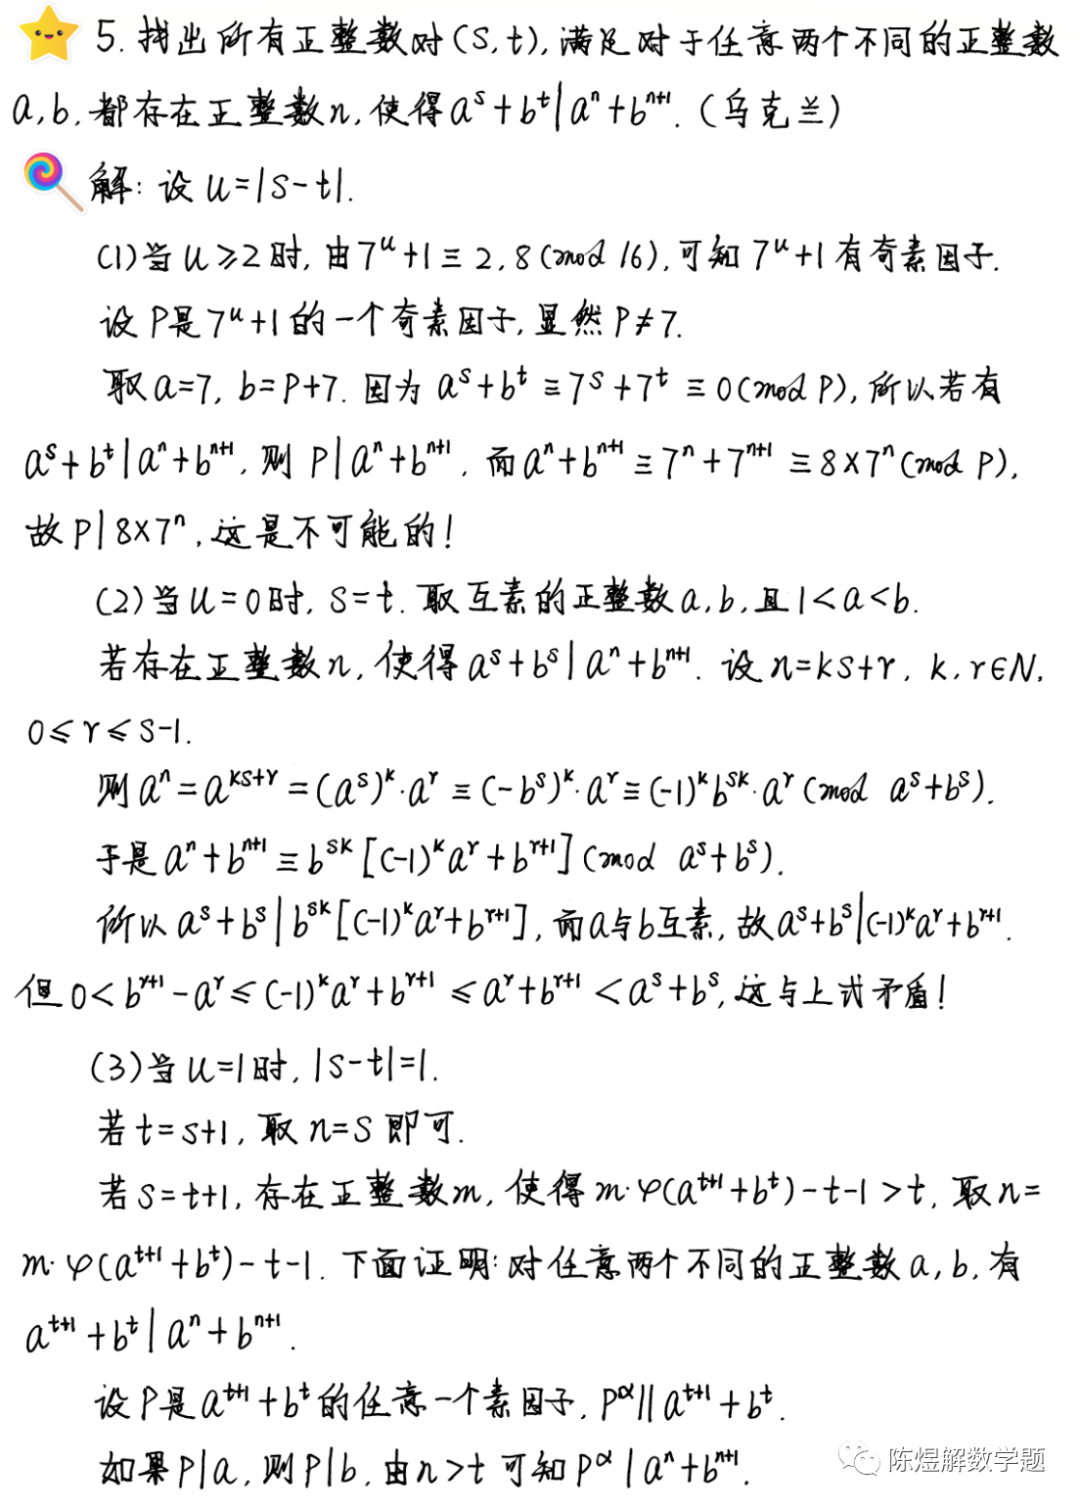 5. 找出所有正整数对(s,t), 满足对于任意两个不同的正整数
a,b, 都存在正整数n, 使得a^s+b^t|a^n+b^{n+1}. (乌克兰)
解: 设 u=|s-t|.
(1)当u≥2时, 由7^u+1≡2,8(mod 16), 可知7^u+1有奇素因子.
设P是7^u+1的一个奇素因子, 显然P≠7.
取a=7, b=P+7. 因为a^s+b^t≡7^s+7^t≡0(mod P), 所以若有
a^s+b^t|a^n+b^{n+1}, 则P|a^n+b^{n+1}, 而a^n+b^{n+1}≡7^n+7^{n+1}≡8×7^n(mod P),
故P|8×7^n, 这是不可能的!
(2)当u=0时, s=t. 取互素的正整数a,b, 且1<a<b.
若存在正整数n, 使得a^s+b^s|a^n+b^{n+1}. 设n=ks+r, k,r∈N,
0≤r≤s-1.
则a^n=a^{ks+r}=(a^s)^k·a^r≡(-b^s)^k·a^r≡(-1)^k b^{sk}·a^r(mod a^s+b^s).
于是a^n+b^{n+1}≡b^{sk}[(-1)^k a^r+b^{r+1}](mod a^s+b^s).
所以a^s+b^s|b^{sk}[(-1)^k a^r+b^{r+1}], 而a与b互素, 故a^s+b^s|(-1)^k a^r+b^{r+1}.
但0<b^{r+1}-a^r≤(-1)^k a^r+b^{r+1}≤a^r+b^{r+1}<a^s+b^s, 这与上式矛盾!
(3)当u=1时, |s-t|=1.
若t=s+1, 取n=s即可.
若s=t+1, 存在正整数m, 使得m·φ(a^{t+1}+b^t)-t-1>t, 取n=
m·φ(a^{t+1}+b^t)-t-1. 下面证明: 对任意两个不同的正整数a,b, 有
a^{t+1}+b^t|a^n+b^{n+1}.
设P是a^{t+1}+b^t的任意一个素因子, P^α||a^{t+1}+b^t.
如果P|a, 则P|b, 由n>t可知P^α|a^n+b^{n+1}.
陈煜解数学题